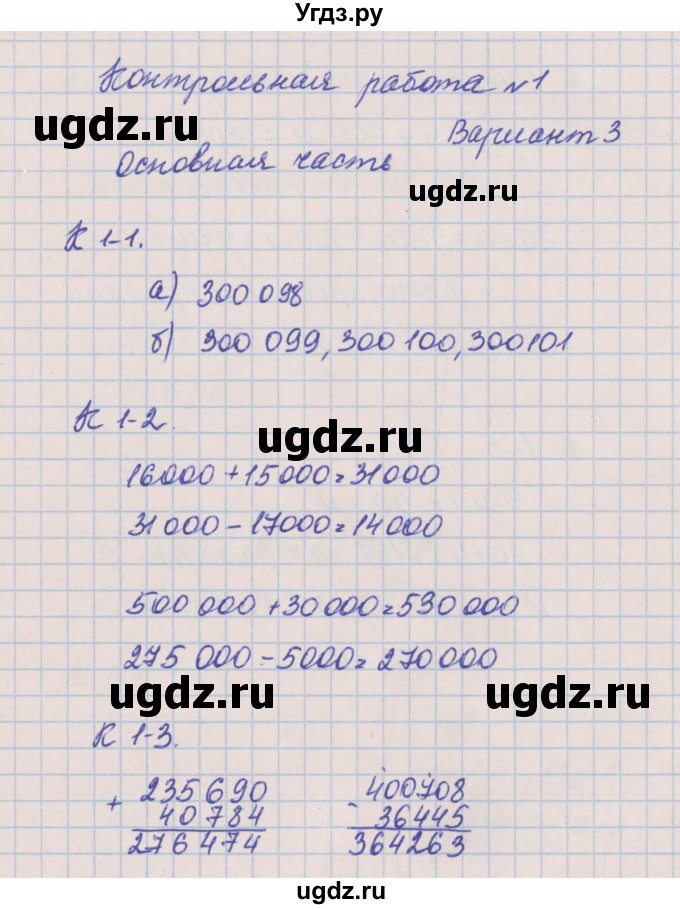 Угдз.ру
Контрольная работа №1
ugdz.ru
Вариант 3
Основная часть
ugdz.ru
К 1-1.
а) 300 098
б) 300 099, 300 100, 300101
К 1-2.
ugdz.ru
16000 + 15000 = 31000
31 000 - 17000 = 14 000
500 000 + 30 000 = 530 000
275 000 - 5000 = 270 000
ugdz.ru
ugdz.ru
К 1-3.
+ 235 690
40 784
276 474
- 400708
36445
364263
ugdz.ru
ugdz.ru
ugdz.ru